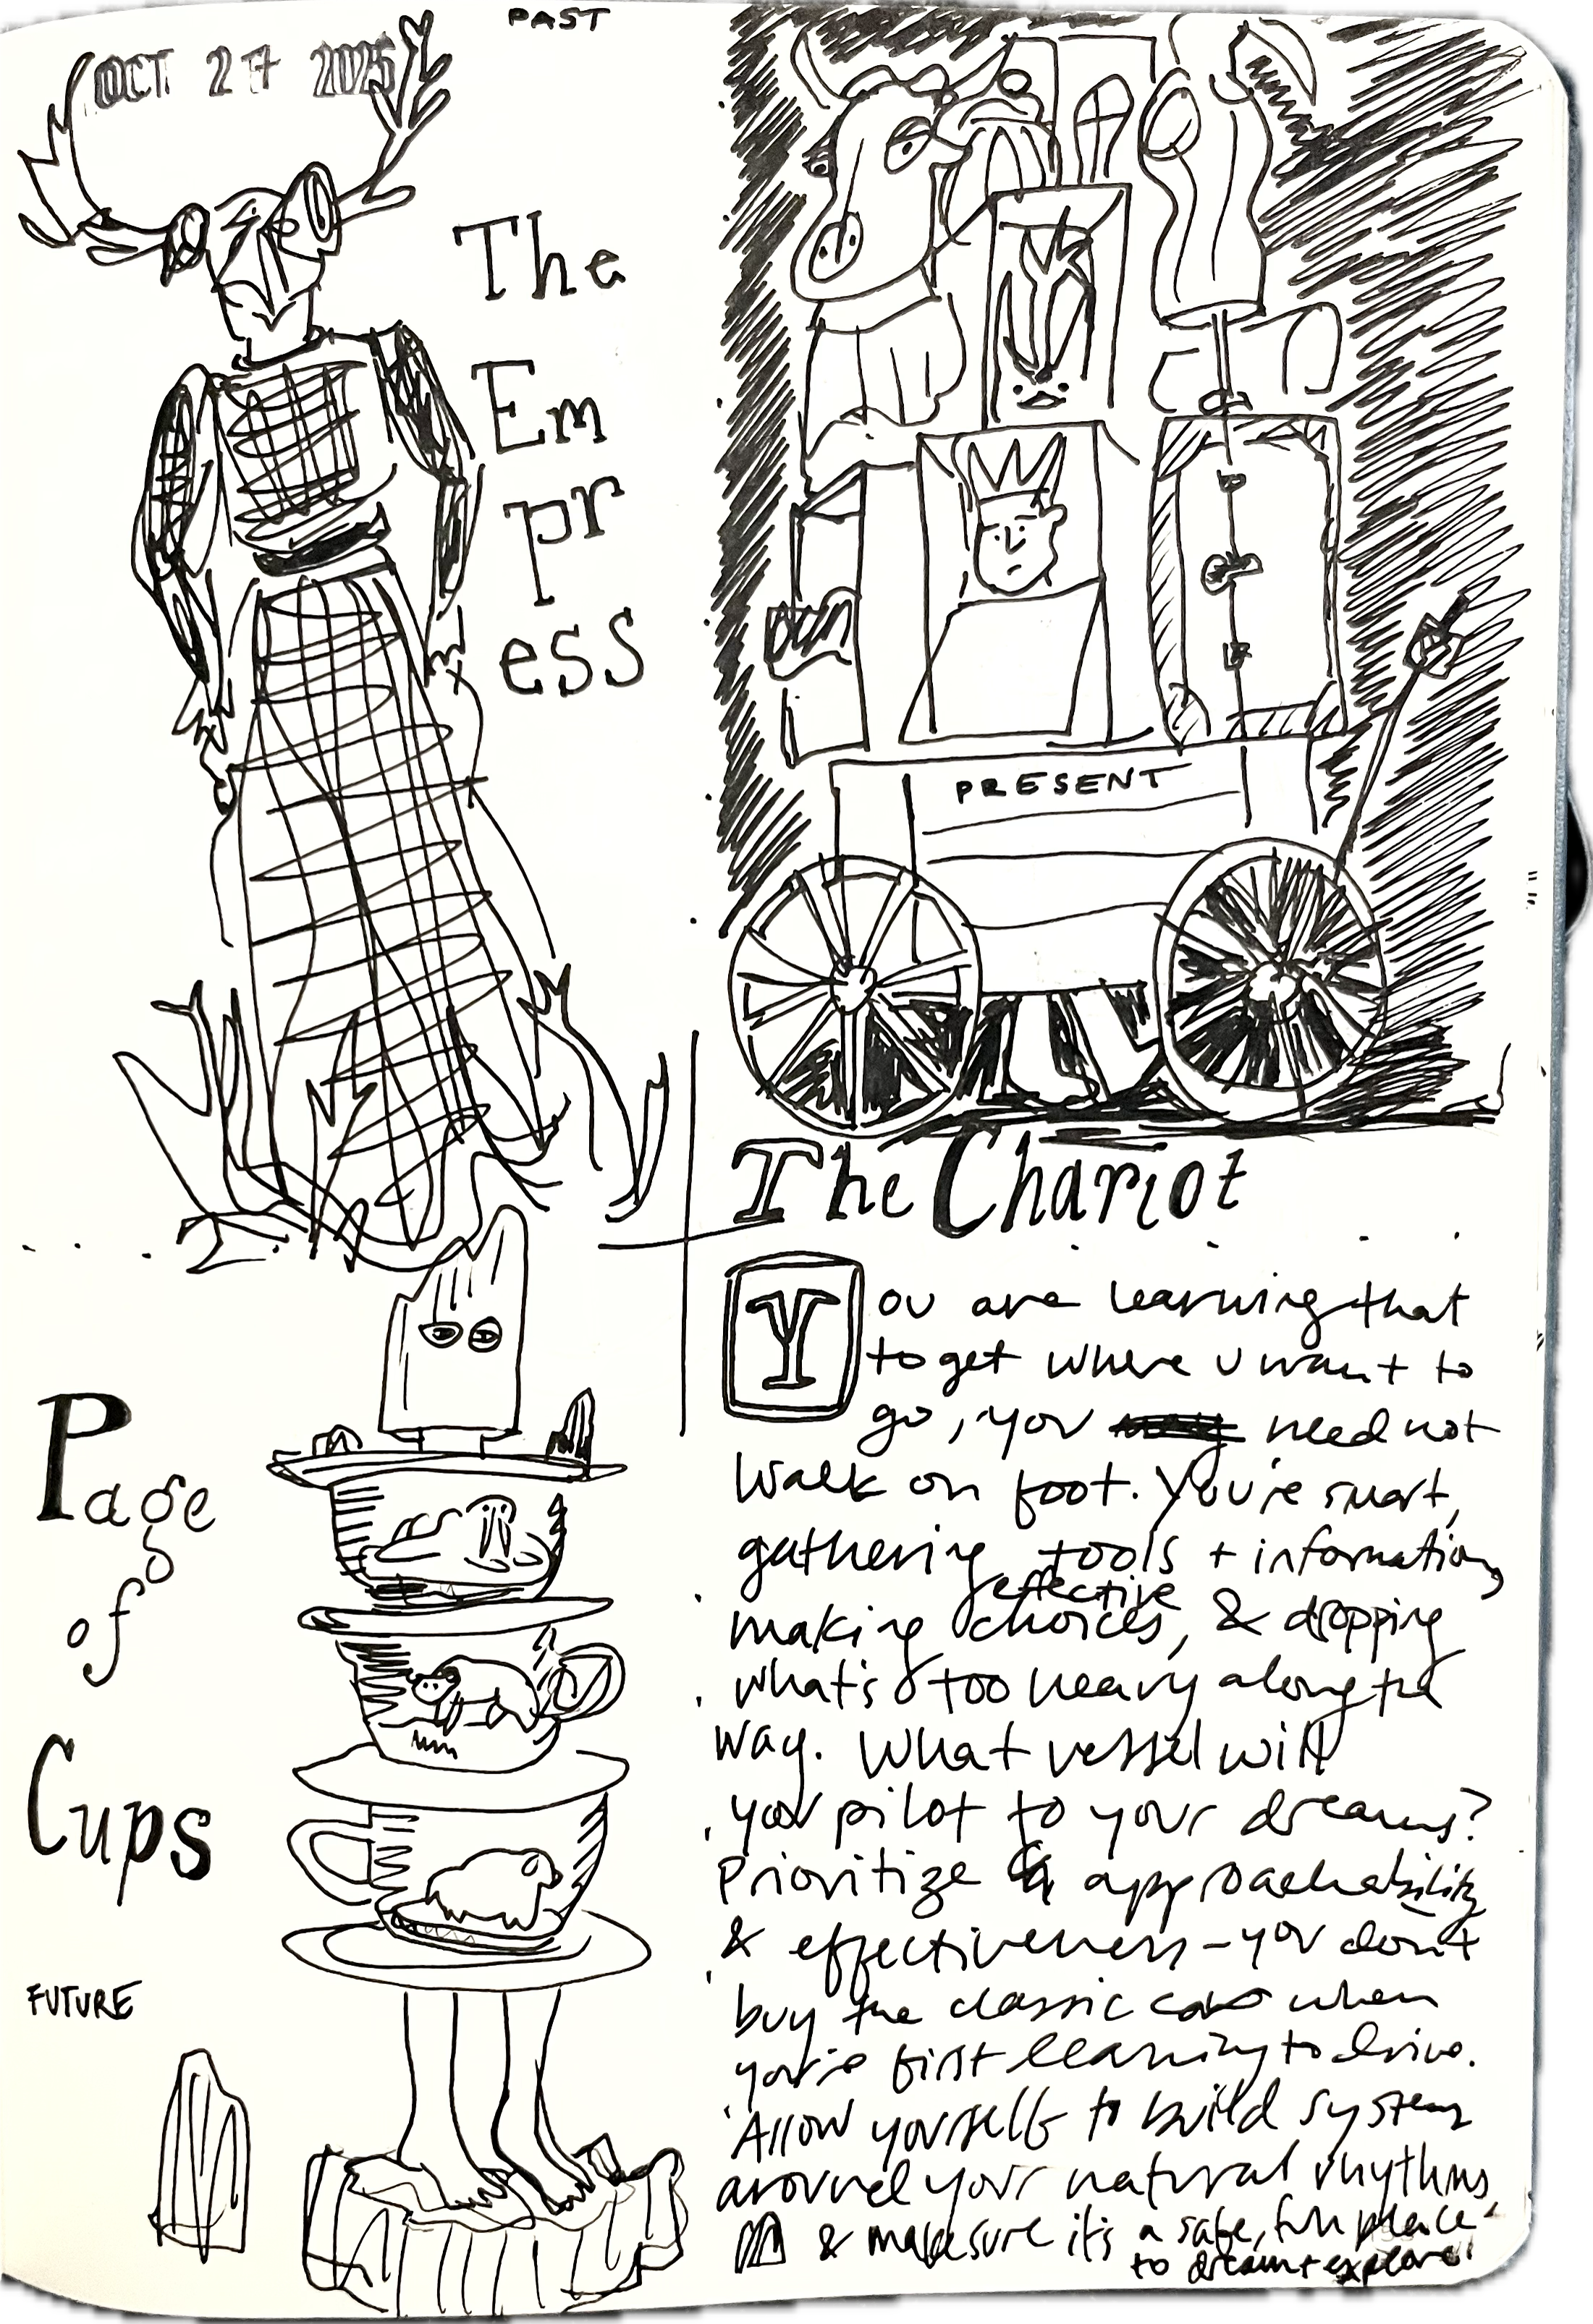 PAST
OCT 27 2025
The
Em
pr
ess
PRESENT
The Chariot
Page
of
Cups
FUTURE
You are learning that
to get where u want to
go, you need not
walk on foot. You're smart,
gathering tools + information,
making effective choices, & dropping
what's too heavy along the
way. What vessel will
you pilot to your dreams?
Prioritize approachability
& effectiveness - you don't
buy the classic car when
you're first learning to drive.
Allow yourself to build systems
around your natural rhythms
& make sure it's a safe, fun place
to dream + explore!